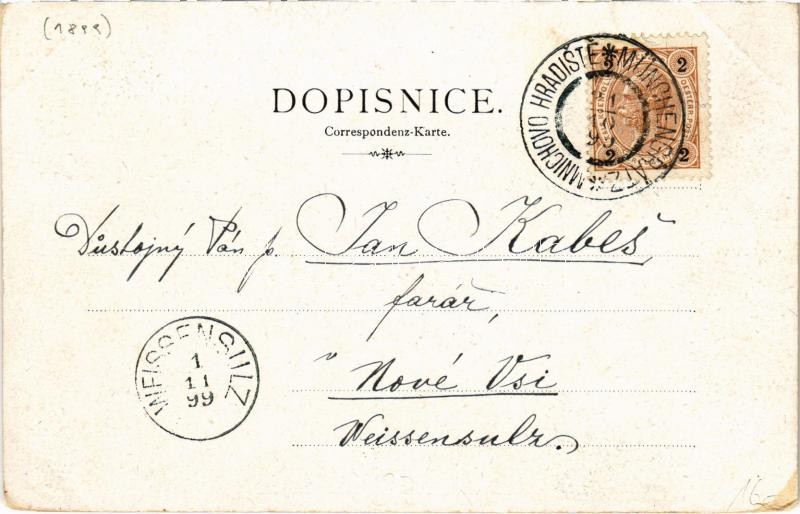 (1899)
DOPISNICE.
Correspondenz-Karte.
MNICHOVO HRADIŠTĚ * MÜNCHENGRÄTZ *
2 2
2 2
Důstojný Pán p. Jan Kabeš
farář,
v Nové Vsi
Weissensulz.
WEISSENSULZ
1
11
99
16-